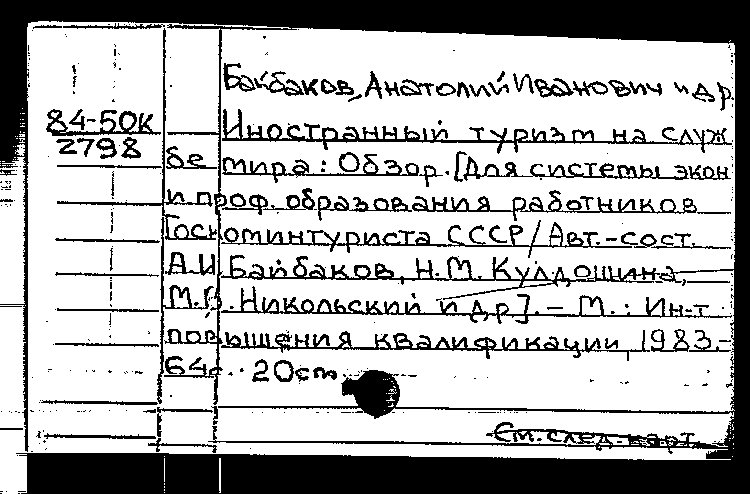 Байбаков, Анатолий Иванович и др
84-50К
2798
Иностранный туризм на служ
бе мира : Обзор. [Для системы экон
и проф. образования работников
Госкоминтуриста СССР / Авт.-сост.
А.И. Байбаков, Н.М. Кулдошина,
М.В. Никольский и др]. – М. : Ин-т
повышения квалификации, 1983.-
64с. 20cm.
См. след. карт.